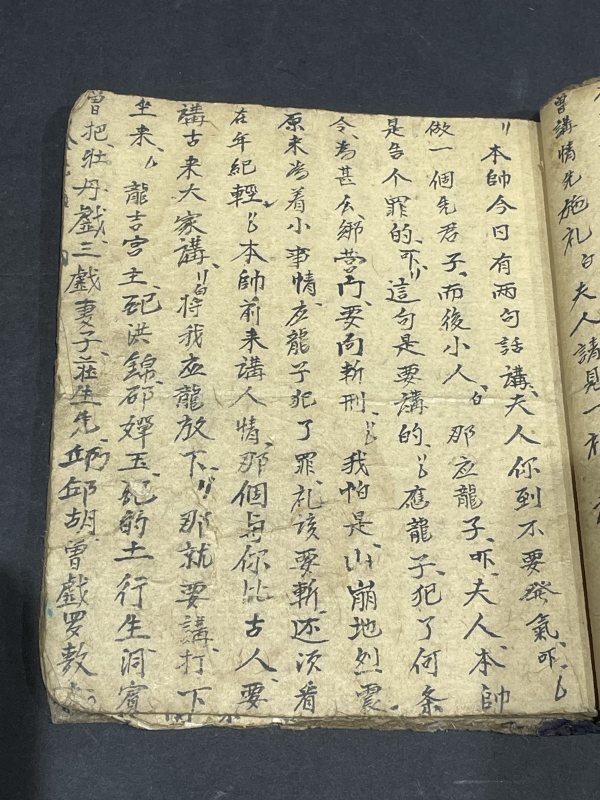 曾講情先施礼白夫人請見一礼
〃本帥今日有兩句話講夫人你到不要發氣吓
做一個先君子而後小人白那应龍子吓夫人本帥
是告个罪的吓〃這句是要講的〃應龍子犯了何条
令為甚么綁营门要问斬刑〃我怕是山崩地烈震
原来為着小事情应龍子犯了罪礼該要斬还须看
在年紀輕〃本帥前来講人情那個与你比古人要
講古来大家講〃白将我应龍放下〃那就要講打下
坐来〃龍吉宫主配洪錦邵嬋玉配的土行生洞賓
曾把牡丹戲三戲妻子莊生先〃邱胡曾戲罗敷